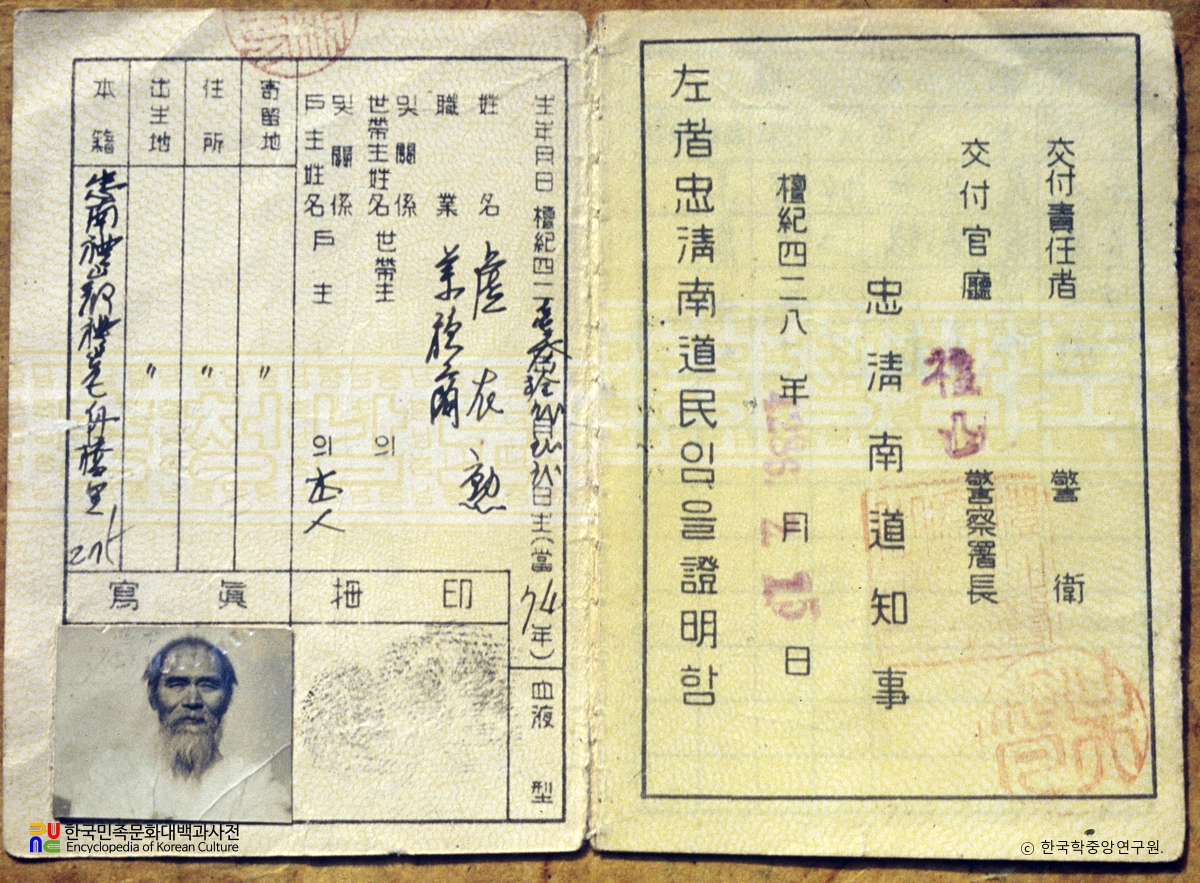 交付責任者 警衛
交付官廳 禮山 警察署長
忠淸南道知事
檀紀四二八 年 月 日
4288. 2 15
左者忠淸南道民임을證明함
生年月日 檀紀四二 日生(當 74 年)
血液 型
姓名
職業
世帶主姓名 및關係 世帶主 의
戶主姓名 및關係 戶主 의 本人
寄留地 〃
住所 〃
出生地 〃
本籍 忠南禮山郡禮山邑舟橋里
寫眞
拇印
한국민족문화대백과사전
Encyclopedia of Korean Culture
ⓒ 한국학중앙연구원.